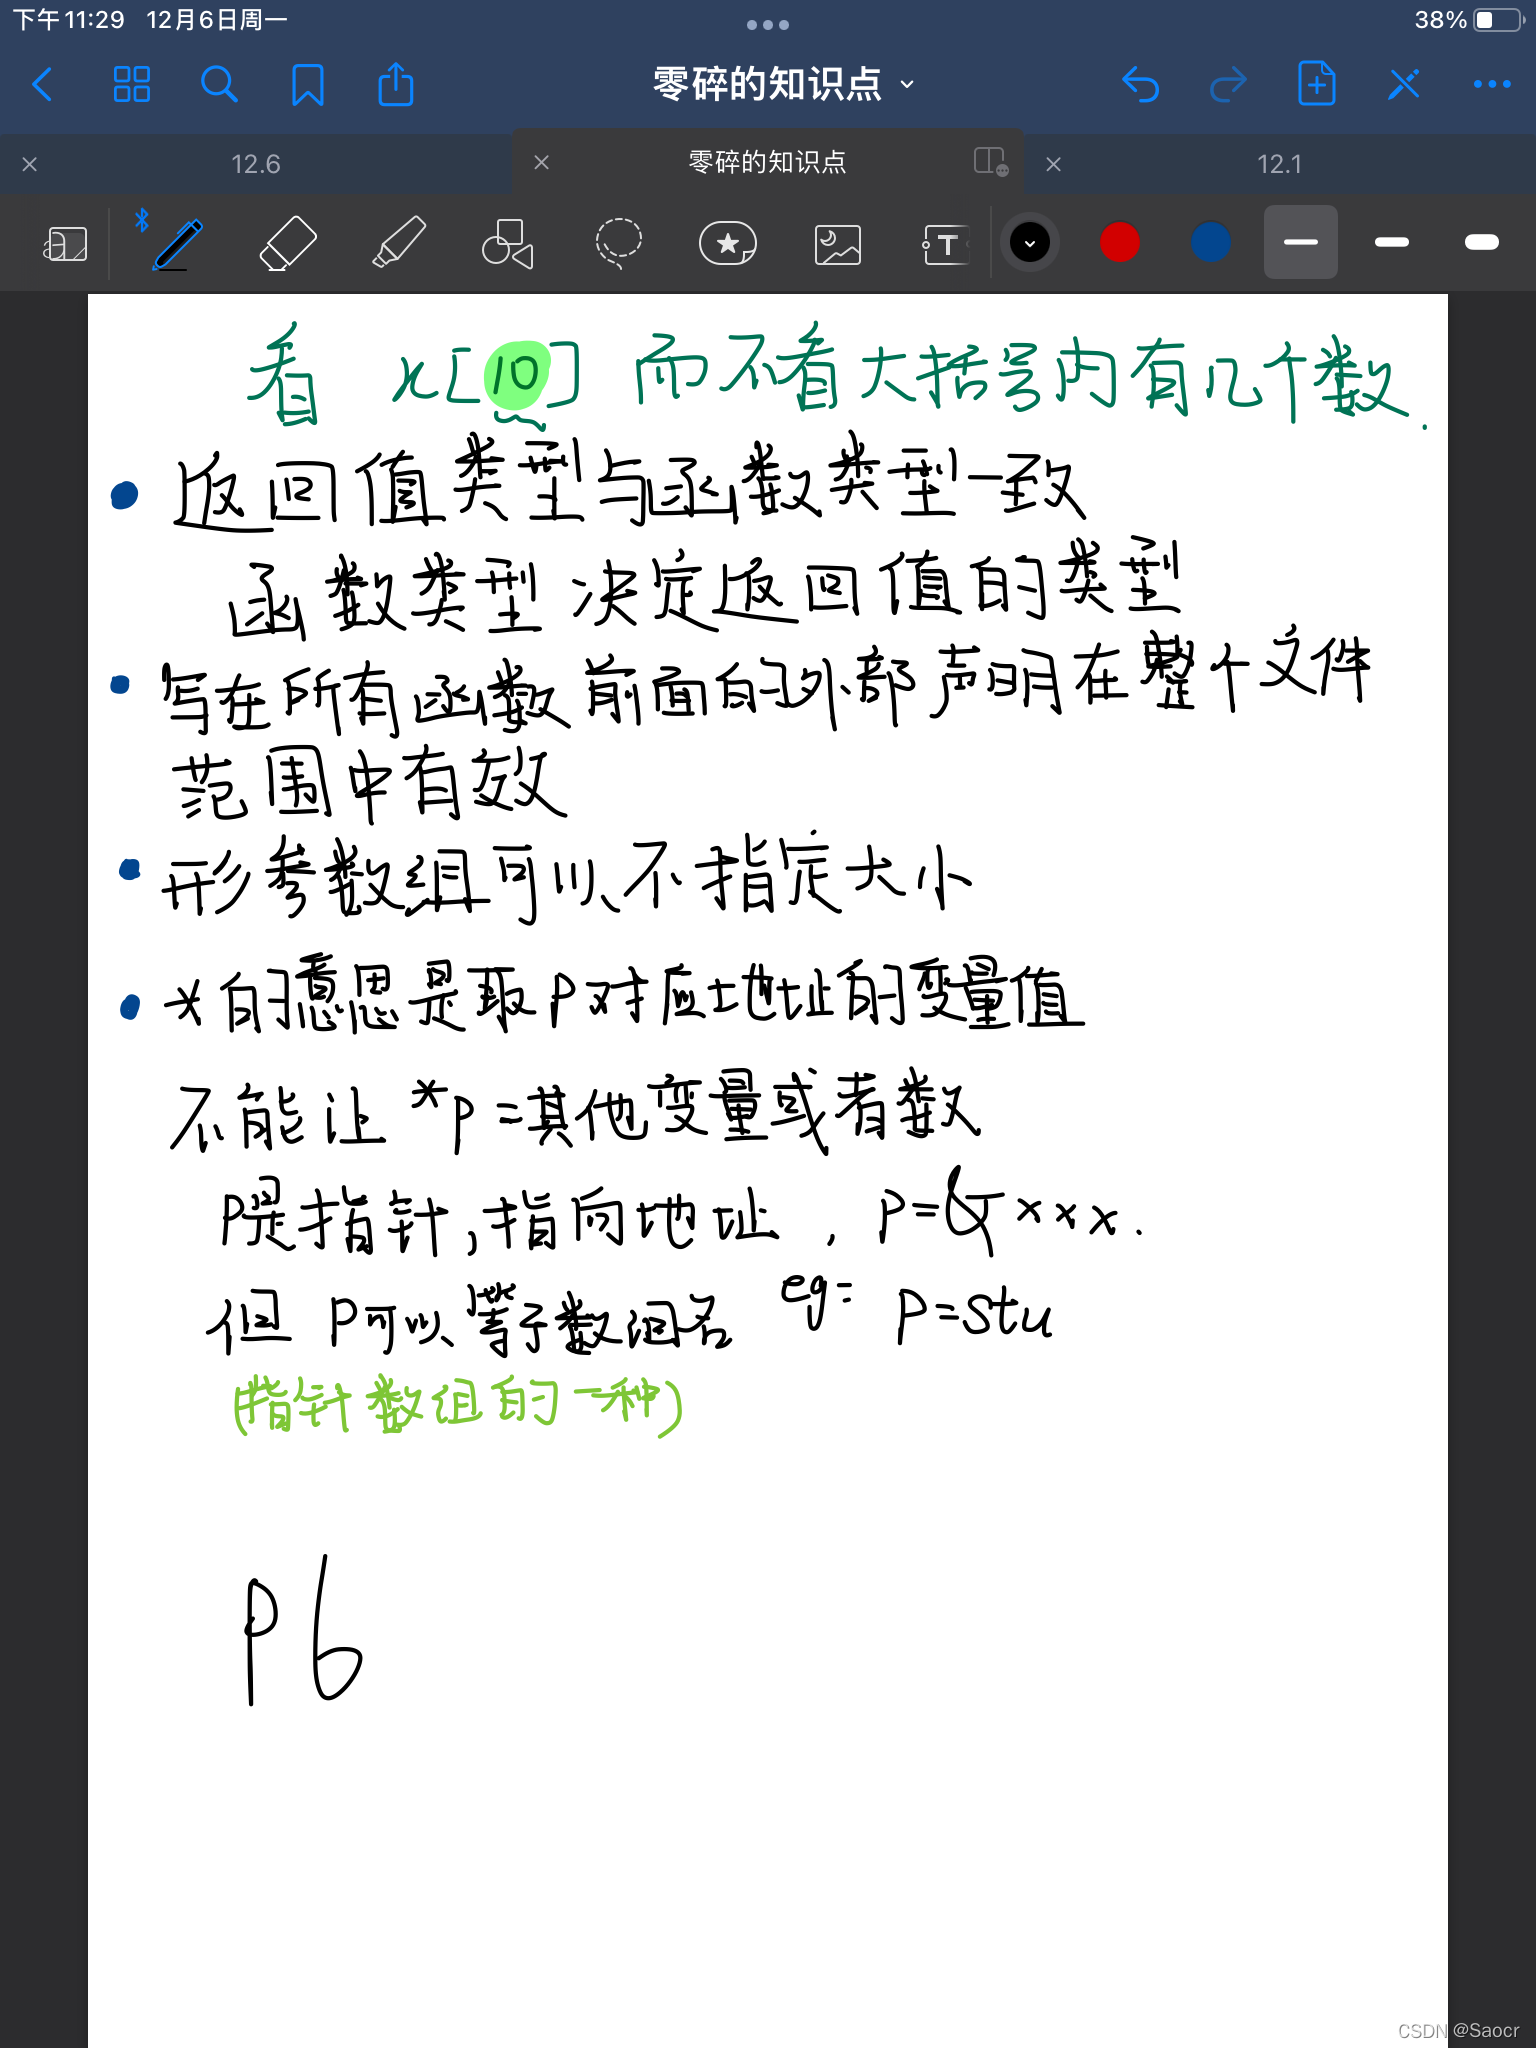 下午11:29 12月6日周一
38%
零碎的知识点
12.6
零碎的知识点
12.1
T
看 x[10] 而不看大括号内有几个数.
返回值类型与函数类型一致
函数类型决定返回值的类型
写在所有函数前面的外部声明在整个文件
范围中有效
形参数组可以不指定大小
*的意思是取P对应地址的变量值
不能让 *P=其他变量或者数
P是指针,指向地址, P=&xxx.
但 P可以等于数组名 eg: P=stu
(指针数组的一种)
P6
CSDN @Saocr